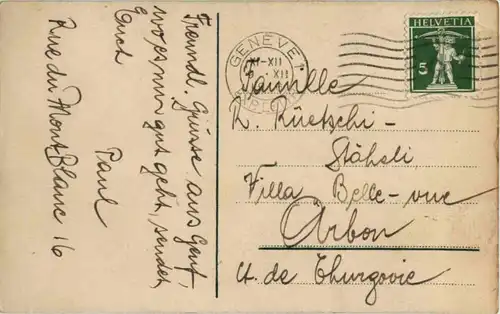 Freundl. Grüsse aus Genf,
wo es mir gut geht, sendet
Euch
Paul
Rue du Mont Blanc 16
GENEVE 1
XI-XII
XII
HELVETIA
5
Famille
R. Rüetschi-
Stäheli
Villa Belle-vue
Arbon
Ct. de Thurgovie